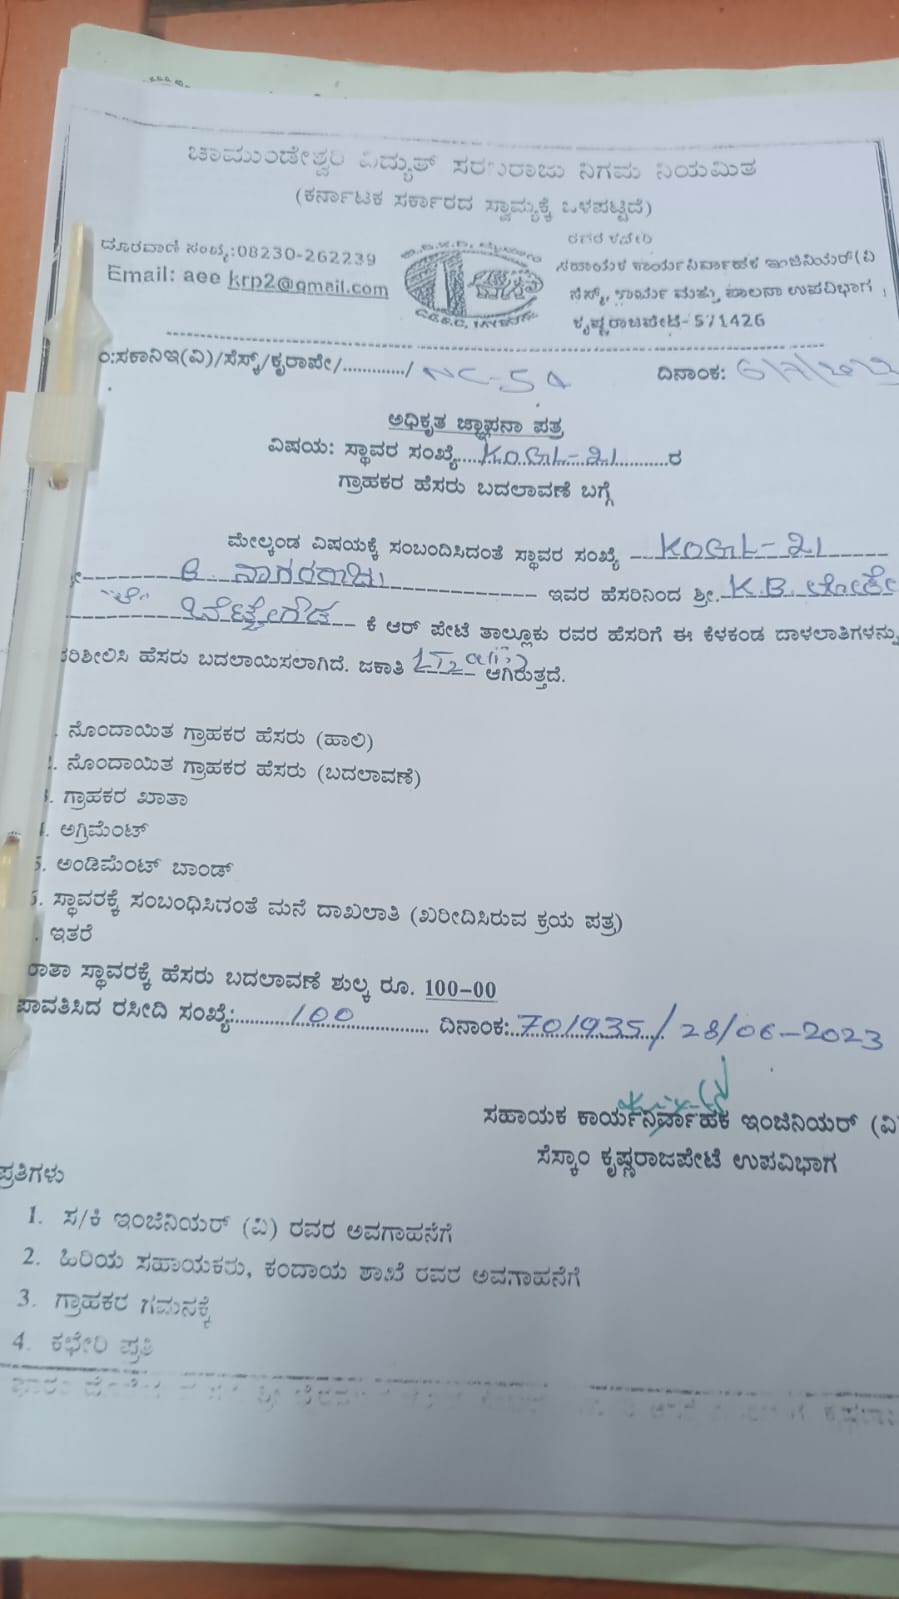 ಚಾಮುಂಡೇಶ್ವರಿ ವಿದ್ಯುತ್ ಸರಬರಾಜು ನಿಗಮ ನಿಯಮಿತ
(ಕರ್ನಾಟಕ ಸರ್ಕಾರದ ಸ್ವಾಮ್ಯಕ್ಕೆ ಒಳಪಟ್ಟಿದೆ)
ದೂರವಾಣಿ ಸಂಖ್ಯೆ:08230-262239
Email: aee krp2@gmail.com
ಸಹಾಯಕ ಕಾರ್ಯನಿರ್ವಾಹಕ ಇಂಜಿನಿಯರ್(ವಿ
ಸೆಸ್ಕ್, ಕಾರ್ಯ ಮತ್ತು ಪಾಲನಾ ಉಪವಿಭಾಗ ,
ಕೃಷ್ಣರಾಜಪೇಟೆ-571426
ಂ:ಸಕಾನಿಇ(ವಿ)/ಸೆಸ್ಕ್/ಕೃರಾಪೇ/............/ NC-59 ದಿನಾಂಕ: 6/7/2023
ಅಧಿಕೃತ ಜ್ಞಾಪನಾ ಪತ್ರ
ವಿಷಯ: ಸ್ಥಾವರ ಸಂಖ್ಯೆ....KOGL-21..........ರ
ಗ್ರಾಹಕರ ಹೆಸರು ಬದಲಾವಣೆ ಬಗ್ಗೆ
ಮೇಲ್ಕಂಡ ವಿಷಯಕ್ಕೆ ಸಂಬಂದಿಸಿದಂತೆ ಸ್ಥಾವರ ಸಂಖ್ಯೆ KOGL-21
B. ನಾಗರಾಜು ಇವರ ಹೆಸರಿನಿಂದ ಶ್ರೀ. K.B. ಲೋಕೇ
ಕೆ ಆರ್ ಪೇಟೆ ತಾಲ್ಲೂಕು ರವರ ಹೆಸರಿಗೆ ಈ ಕೆಳಕಂಡ ದಾಳಲಾತಿಗಳನ್ನು
ರಿಶೀಲಿಸಿ ಹೆಸರು ಬದಲಾಯಿಸಲಾಗಿದೆ. ಜಕಾತಿ LT2 a(ii) ಆಗಿರುತ್ತದೆ.
. ನೊಂದಾಯಿತ ಗ್ರಾಹಕರ ಹೆಸರು (ಹಾಲಿ)
. ನೊಂದಾಯಿತ ಗ್ರಾಹಕರ ಹೆಸರು (ಬದಲಾವಣೆ)
. ಗ್ರಾಹಕರ ಖಾತಾ
. ಅಗ್ರಿಮೆಂಟ್
. ಅಂಡಿಮೆಂಟ್ ಬಾಂಡ್
. ಸ್ಥಾವರಕ್ಕೆ ಸಂಬಂಧಿಸಿದಂತೆ ಮನೆ ದಾಖಲಾತಿ (ಖರೀದಿಸಿರುವ ಕ್ರಯ ಪತ್ರ)
. ಇತರೆ
ರಾತಾ ಸ್ಥಾವರಕ್ಕೆ ಹೆಸರು ಬದಲಾವಣೆ ಶುಲ್ಕ ರೂ. 100-00
ಪಾವತಿಸಿದ ರಸೀದಿ ಸಂಖ್ಯೆ:......100............ ದಿನಾಂಕ:701935/28/06-2023
ಸಹಾಯಕ ಕಾರ್ಯನಿರ್ವಾಹಕ ಇಂಜಿನಿಯರ್ (ವಿ
ಸೆಸ್ಕಾಂ ಕೃಷ್ಣರಾಜಪೇಟೆ ಉಪವಿಭಾಗ
ಪ್ರತಿಗಳು
1. ಸ/ಕಿ ಇಂಜಿನಿಯರ್ (ವಿ) ರವರ ಅವಗಾಹನೆಗೆ
2. ಹಿರಿಯ ಸಹಾಯಕರು, ಕಂದಾಯ ಶಾಖೆ ರವರ ಅವಗಾಹನೆಗೆ
3. ಗ್ರಾಹಕರ ಗಮನಕ್ಕೆ
4. ಕಛೇರಿ ಪ್ರತಿ